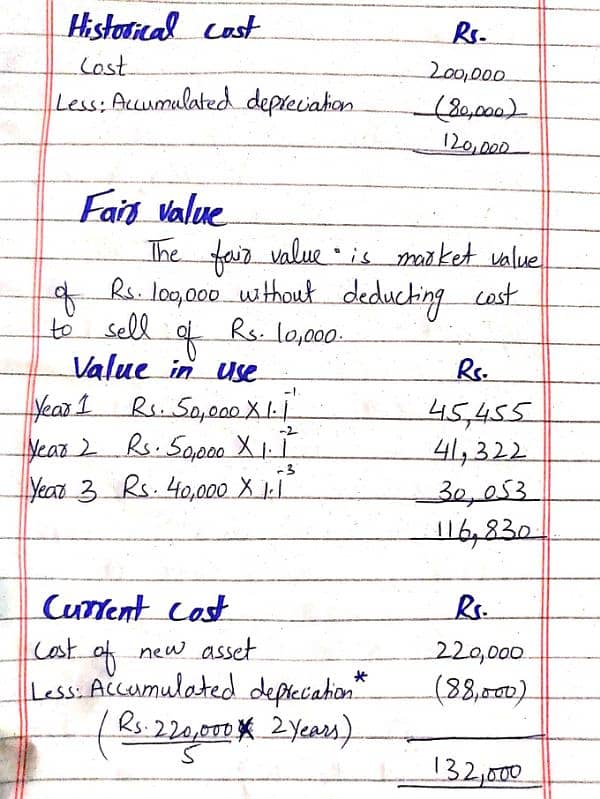 Historical cost Rs.
Cost 200,000
Less: Accumulated depreciation (80,000)
120,000
Fair value
The fair value is market value
of Rs. 100,000 without deducting cost
to sell of Rs. 10,000.
Value in use Rs.
Year 1 Rs. 50,000 X 1.1⁻¹ 45,455
Year 2 Rs. 50,000 X 1.1⁻² 41,322
Year 3 Rs. 40,000 X 1.1⁻³ 30,053
116,830
Current cost Rs.
Cost of new asset 220,000
Less: Accumulated depreciation* (88,000)
(Rs. 220,000 X 2 years)
5
132,000